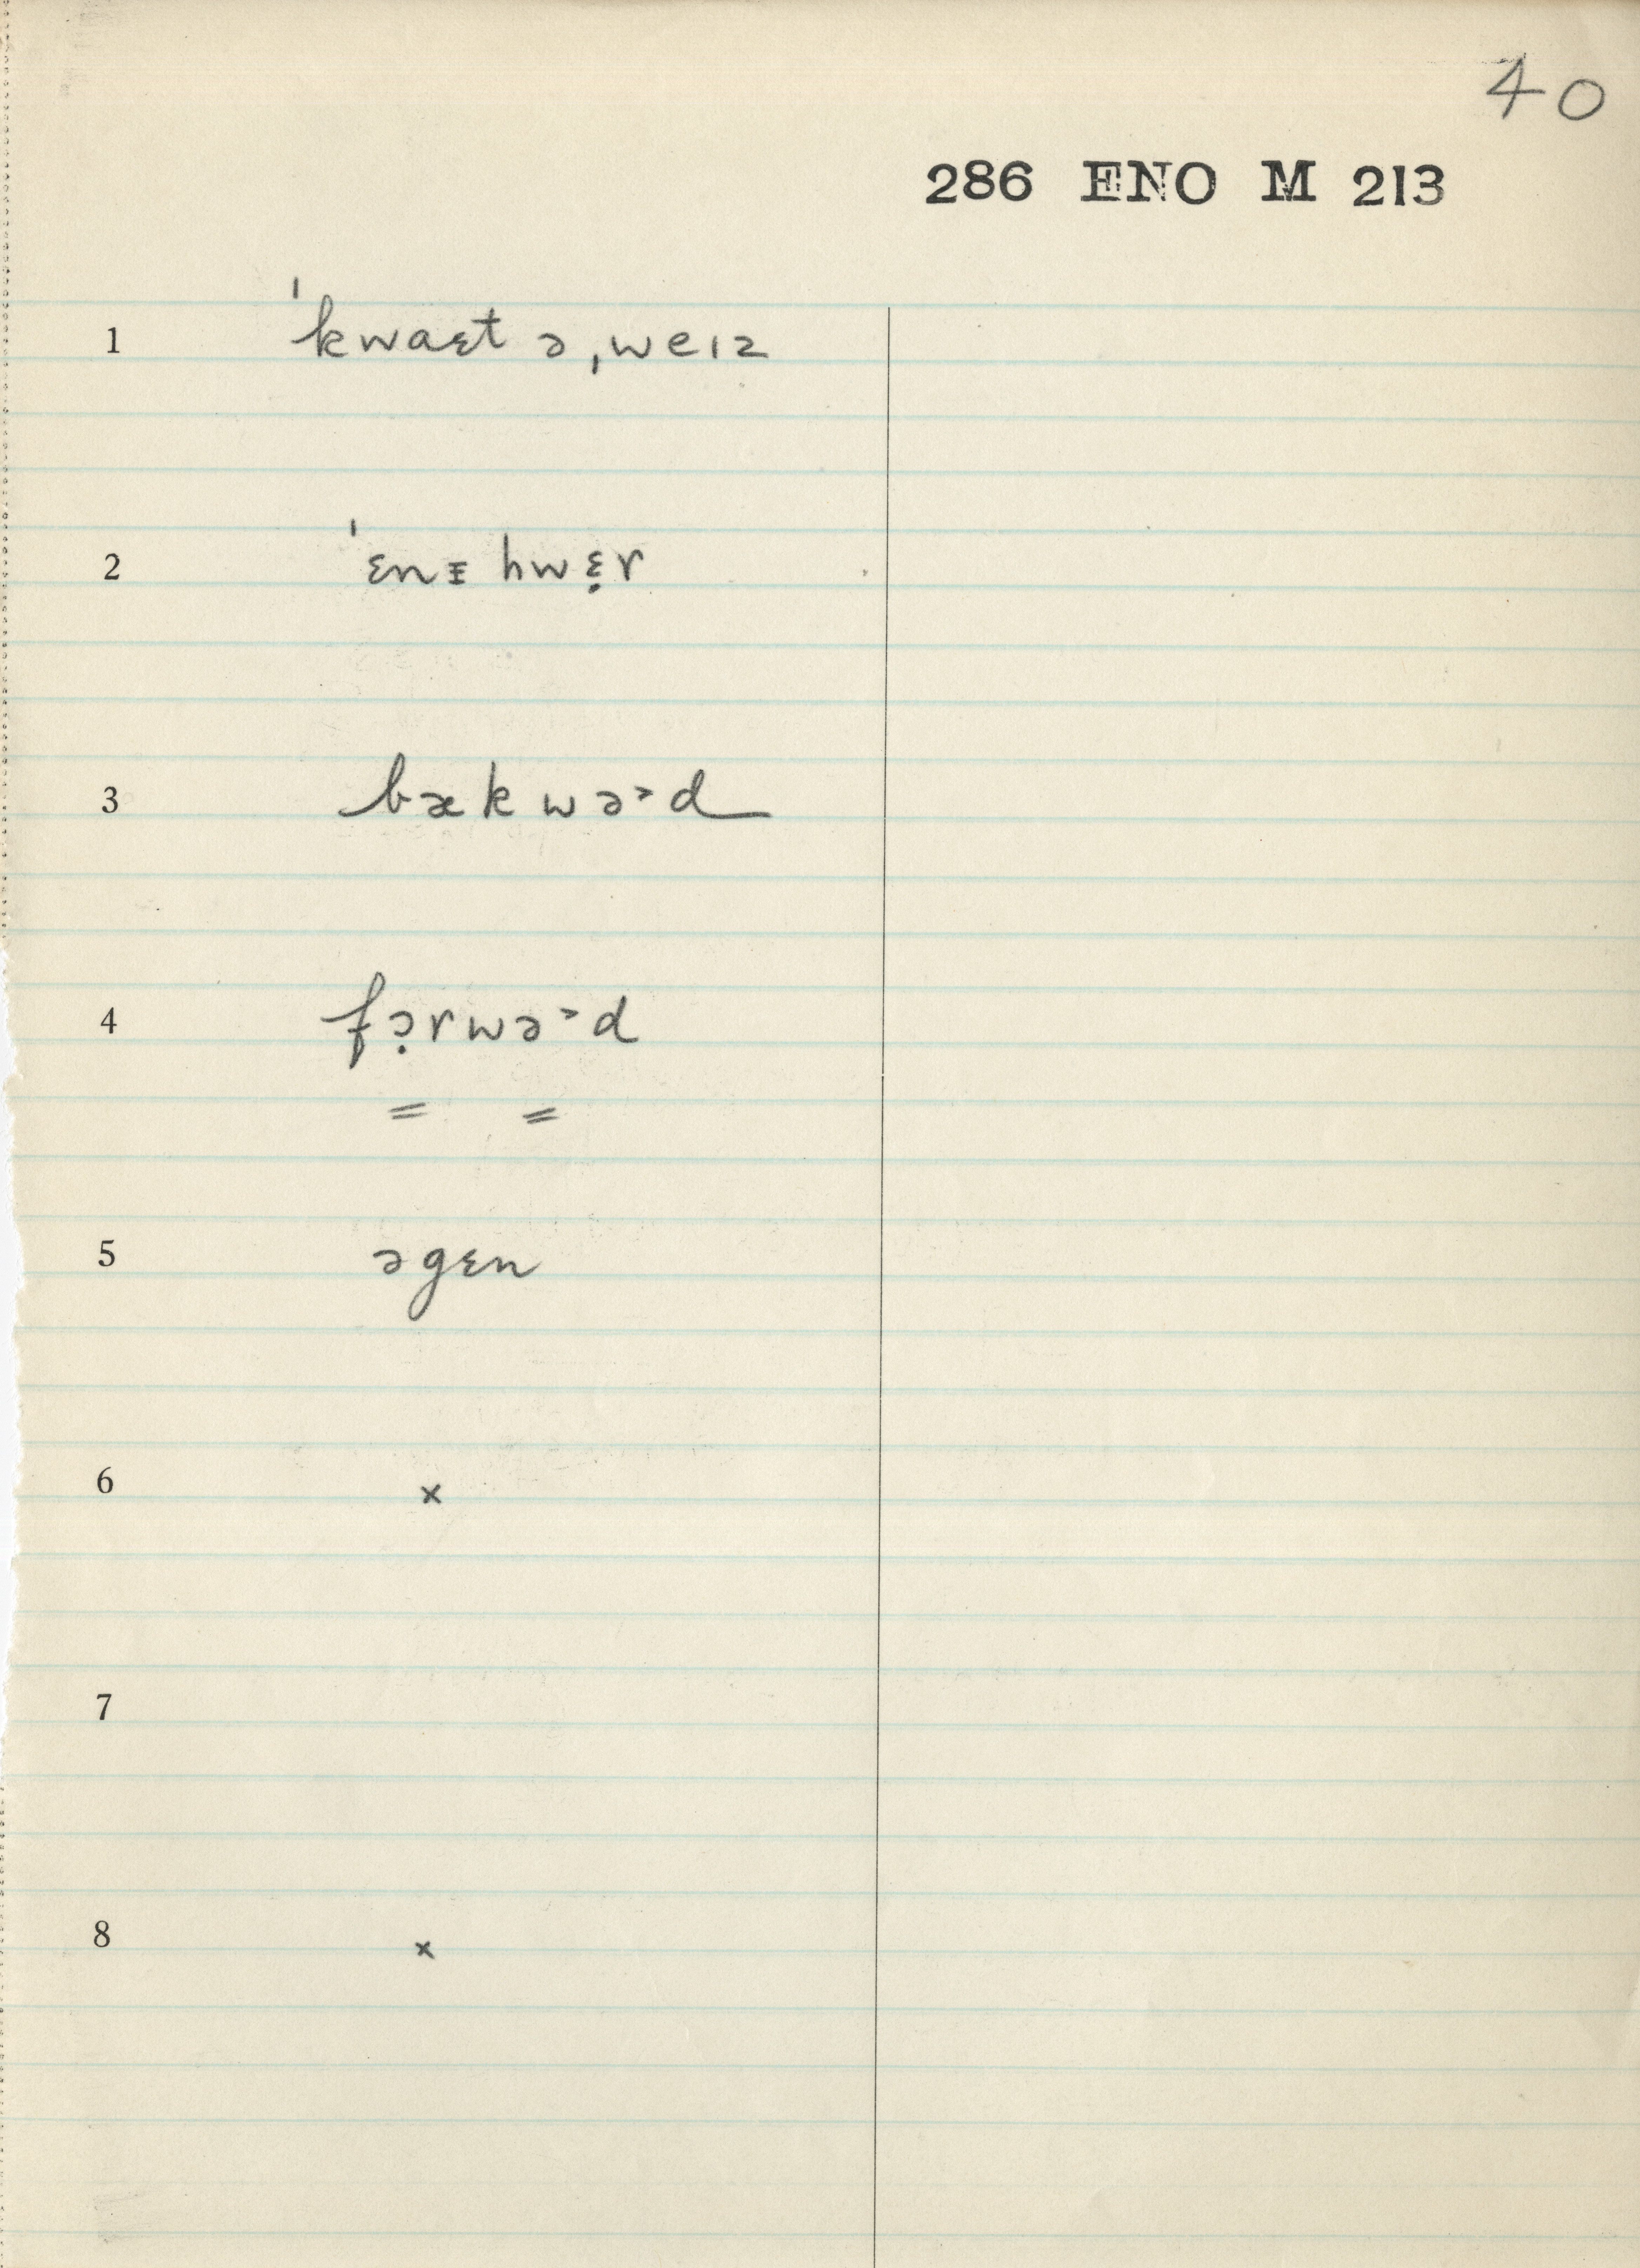 40
286 ENO M 213
1 ˈkwaɛt ə ˌweɪz
2 ˈɛnɪ hwɛ̣r
3 bækwə˃d
4 fɔ̣rwə˃d
= =
5 əgɛn
6 x
7
8 x